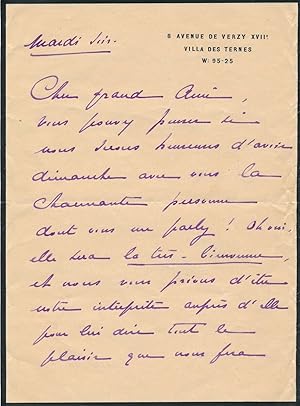 Mardi soir.
8 AVENUE DE VERZY XVIIE
VILLA DES TERNES
W: 95-25
Cher grand Ami,
vous pouvez penser si
nous serons heureux d'avoir
dimanche avec vous la
charmante personne
dont vous me parlez ! Oh oui,
elle sera la très-bienvenue,
et nous vous prions d'être
notre interprète auprès d'elle
pour lui dire tout le
plaisir que nous fera